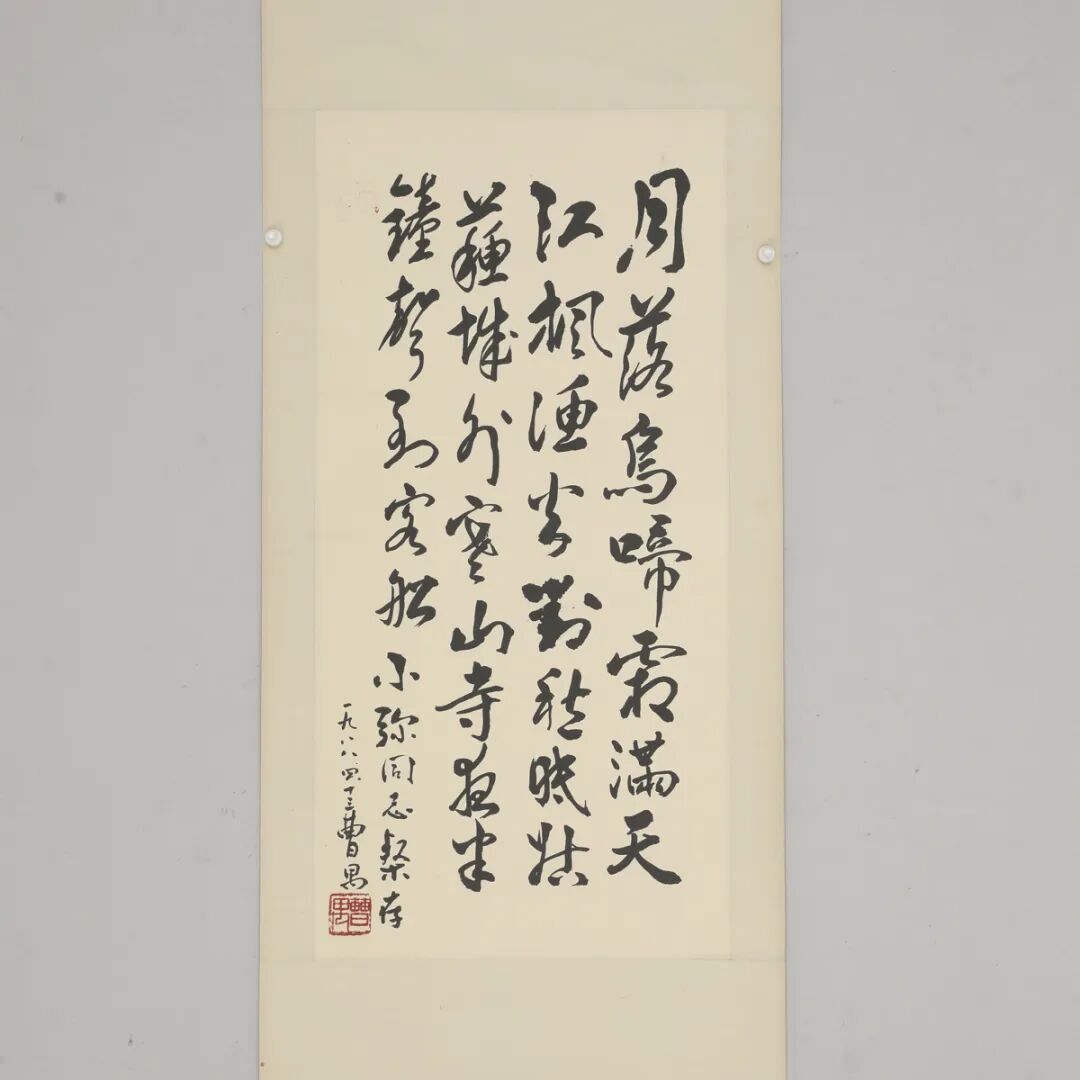 月落烏啼霜滿天
江楓漁火對愁眠姑
蘇城外寒山寺夜半
鐘聲到客船 小弥同志粲存
一九八八四十三曹禺
曹禺